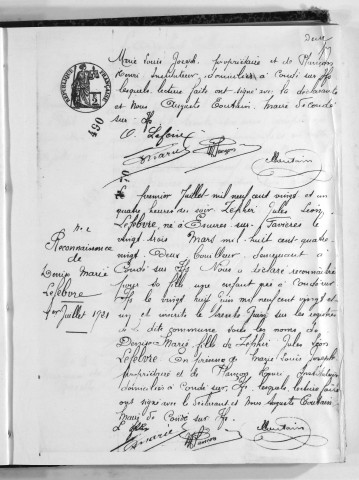 Marie Louis Joseph, propriétaire et de Plançon
Henri, Instituteur, domiciliés à Condé sur Ifs
lesquels, lecture faite ont signé avec la déclarante
et Nous Auguste Moutain, Maire de Condé
sur Ifs
RÉPUBLIQUE FRANÇAISE
490
70
Le premier Juillet mil neuf cent vingt et un
quatre heures du soir Zéphir Jules Léon
Lefebvre, né à Esnres sur
vingt trois Mars mil huit cent quatre
vingt Deux
Condé sur Ifs Nous a déclaré reconnaître
pour sa fille une enfant née à Condé sur
Ifs le vingt huit Juin mil neuf cent vingt et
un et inscrite le trente Juin sur les registres
de la dite commune sous les noms de
Denise Marie, fille de Zéphir Jules Léon
Lefebvre En présence de Marie Louis Joseph
propriétaire et de Plançon Henri Instituteur
domiciliés à Condé sur Ifs lesquels, lecture faite
ont signé avec le déclarant et Nous Auguste Moutain
Maire de Condé sur Ifs.
N° 2
Reconnaissance
de
Denise Marie
Lefebvre
1er Juillet 1921